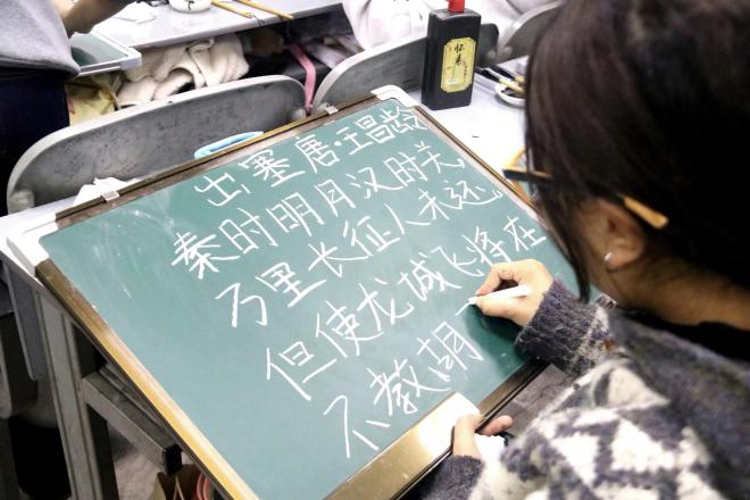 出塞 唐·王昌龄
秦时明月汉时关
万里长征人未还
但使龙城飞将在
不教胡